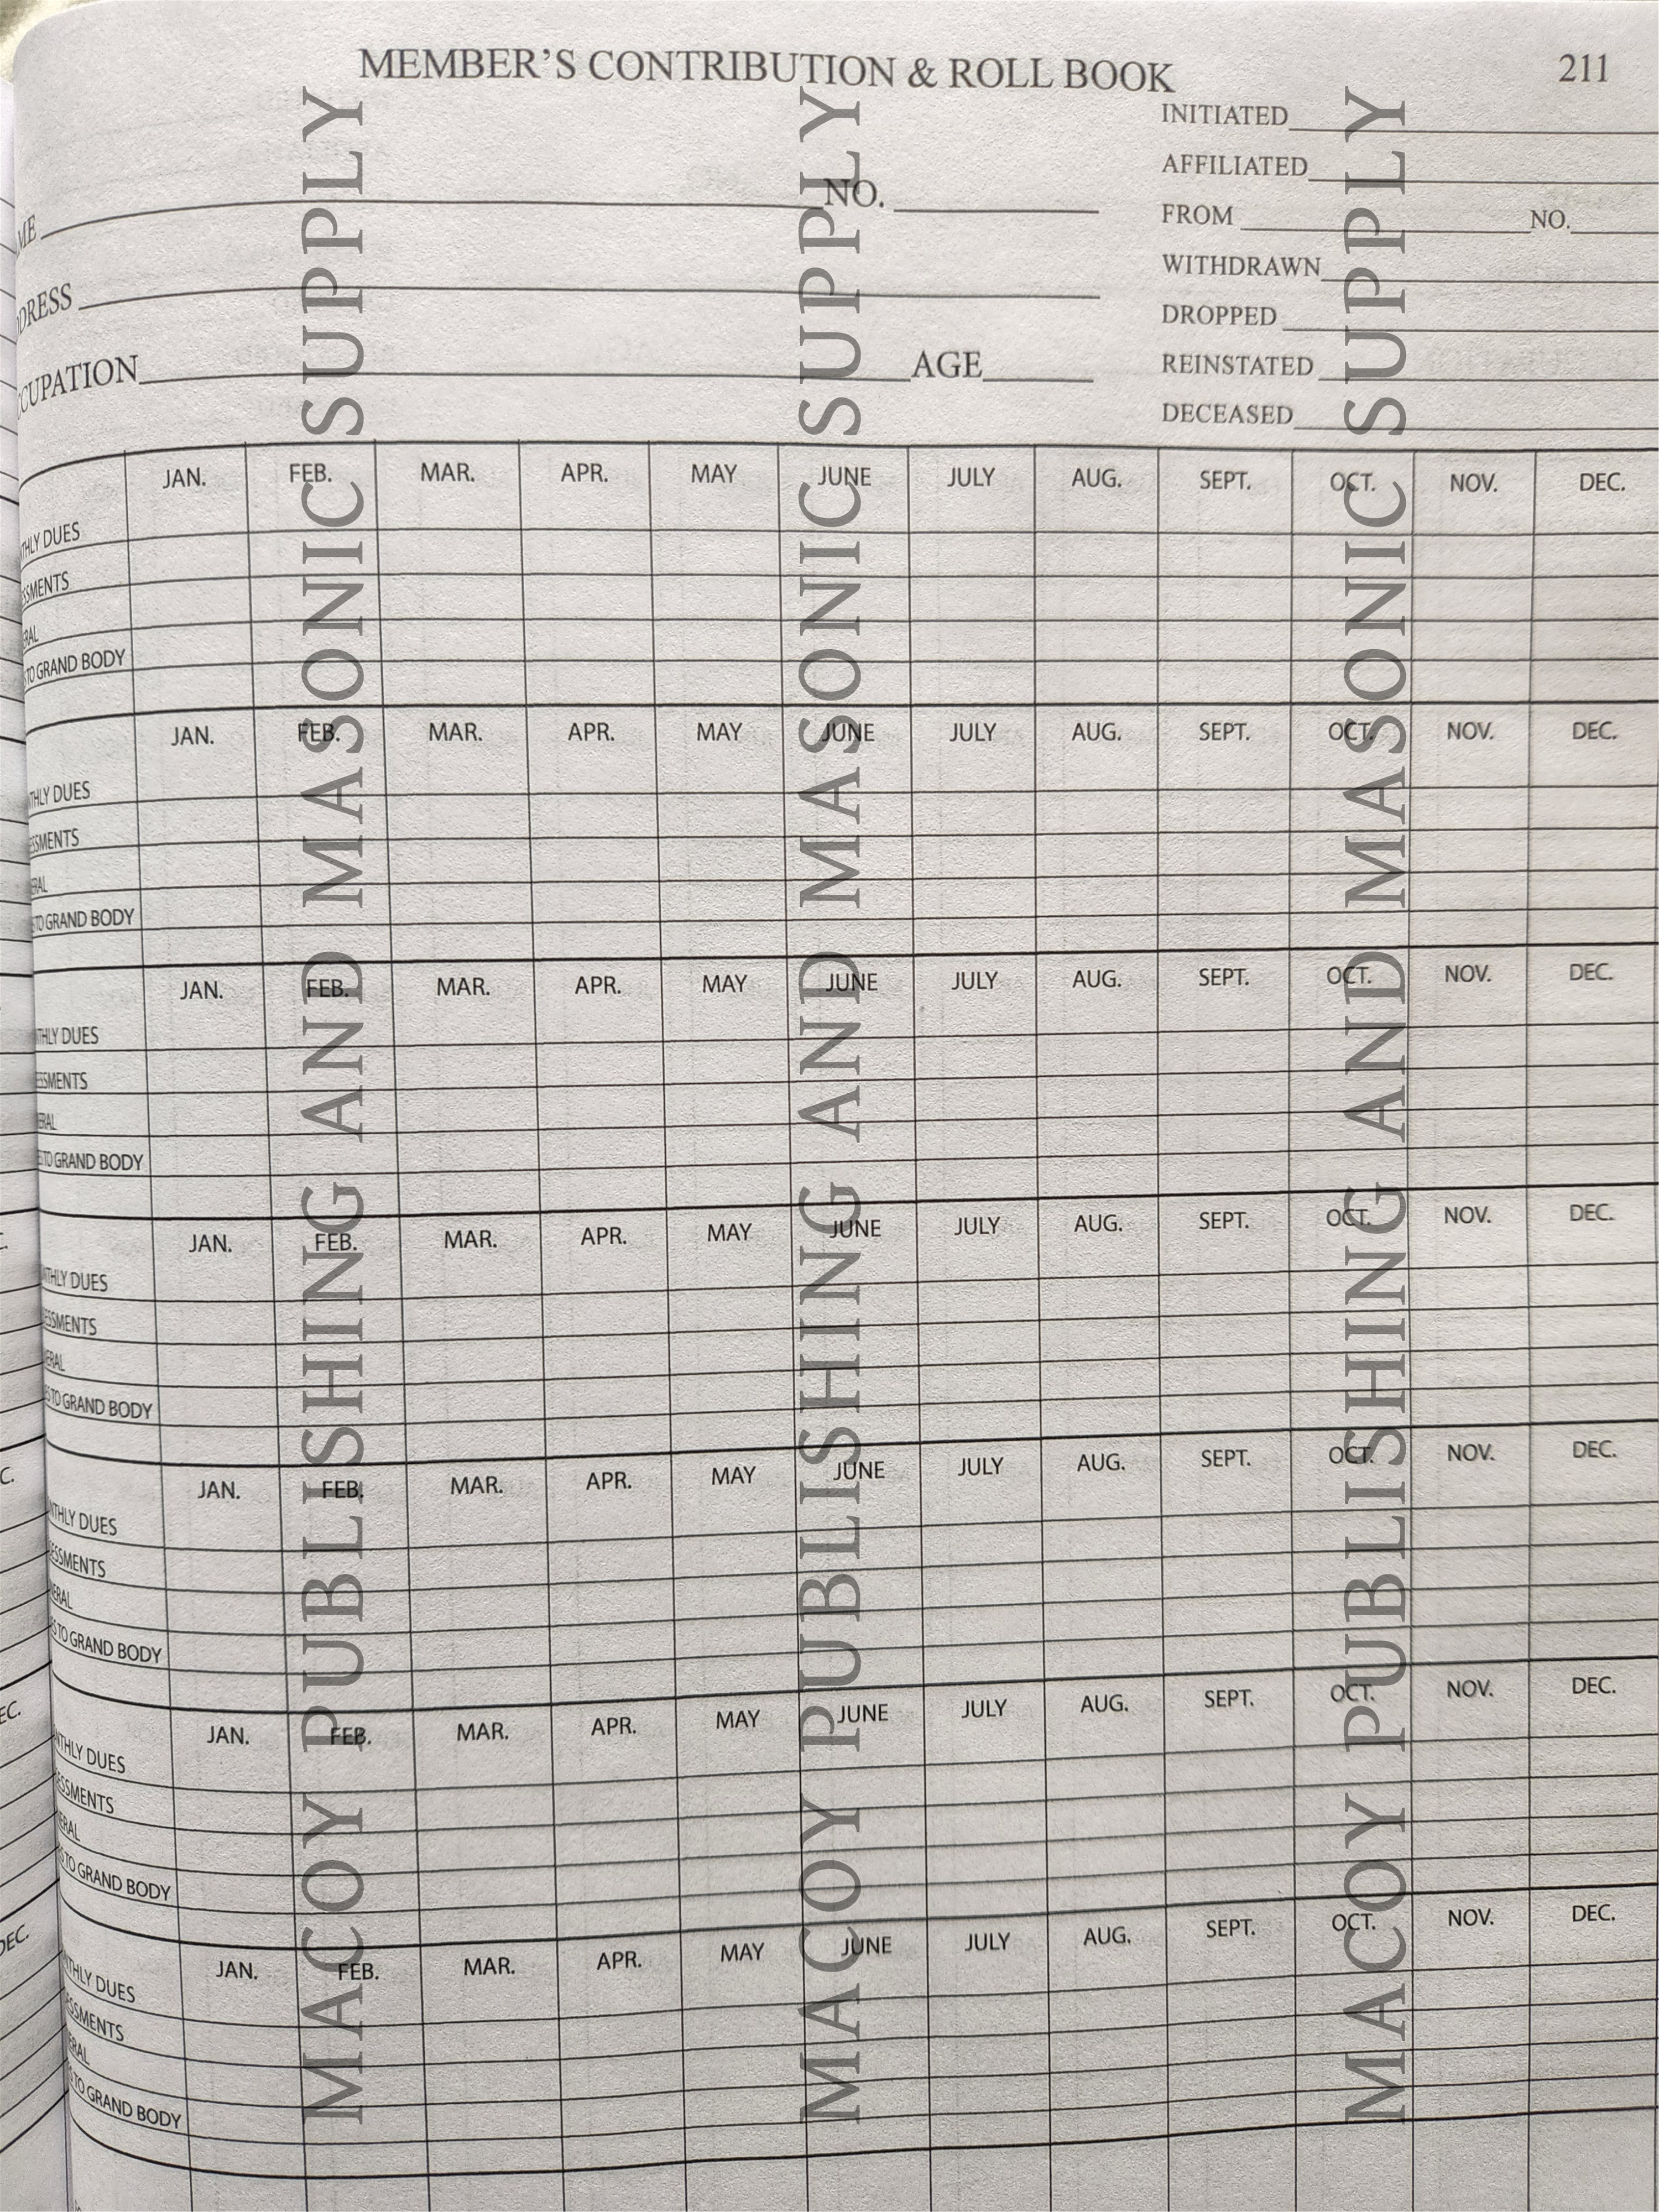 MEMBER'S CONTRIBUTION & ROLL BOOK 211
INITIATED
AFFILIATED
FROM NO.
WITHDRAWN
DROPPED
REINSTATED
DECEASED
ME NO.
DRESS
CUPATION AGE
JAN. FEB. MAR. APR. MAY JUNE JULY AUG. SEPT. OCT. NOV. DEC.
THLY DUES
SSMENTS
ERAL
TO GRAND BODY
JAN. FEB. MAR. APR. MAY JUNE JULY AUG. SEPT. OCT. NOV. DEC.
THLY DUES
ESSMENTS
ERAL
TO GRAND BODY
JAN. FEB. MAR. APR. MAY JUNE JULY AUG. SEPT. OCT. NOV. DEC.
THLY DUES
ESSMENTS
ERAL
TO GRAND BODY
JAN. FEB. MAR. APR. MAY JUNE JULY AUG. SEPT. OCT. NOV. DEC.
NTHLY DUES
ESSMENTS
ERAL
S TO GRAND BODY
JAN. FEB. MAR. APR. MAY JUNE JULY AUG. SEPT. OCT. NOV. DEC.
NTHLY DUES
ESSMENTS
ERAL
S TO GRAND BODY
JAN. FEB. MAR. APR. MAY JUNE JULY AUG. SEPT. OCT. NOV. DEC.
NTHLY DUES
ESSMENTS
ERAL
TO GRAND BODY
JAN. FEB. MAR. APR. MAY JUNE JULY AUG. SEPT. OCT. NOV. DEC.
THLY DUES
SSMENTS
ERAL
TO GRAND BODY
MACOY PUBLISHING AND MASONIC SUPPLY
MACOY PUBLISHING AND MASONIC SUPPLY
MACOY PUBLISHING AND MASONIC SUPPLY